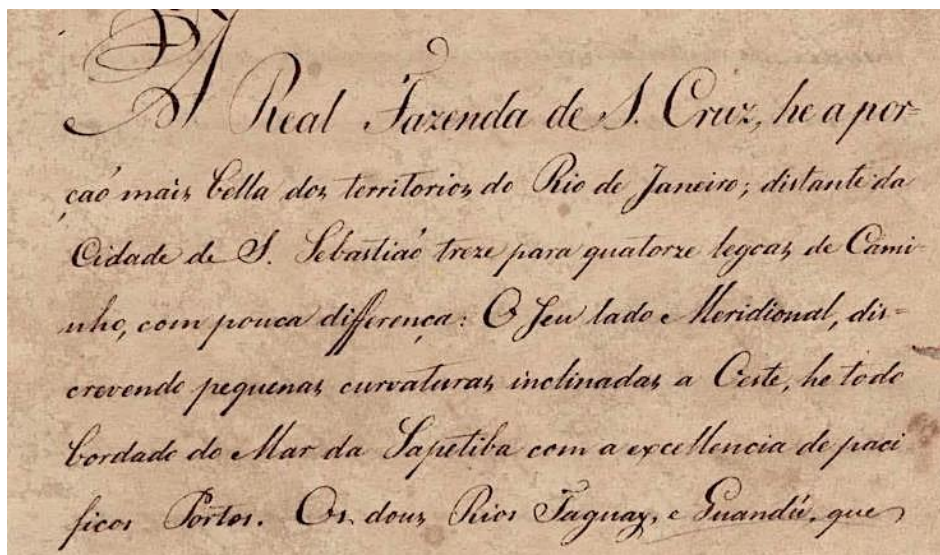 A Real Fazenda de S. Cruz, he a por=
çaõ mais bella dos territorios do Rio de Janeiro; distante da
Cidade de S. Sebastiaõ treze para quatorze legoas de Cami-
nho, com pouca differença: O seu lado Meridional, dis=
crevendo pequenas curvaturas inclinadas a Oeste, he todo
bordado do Mar da Sapetiba com a excellencia de paci
ficos Portos. Os dous Rios Taguay, e Guandú, que